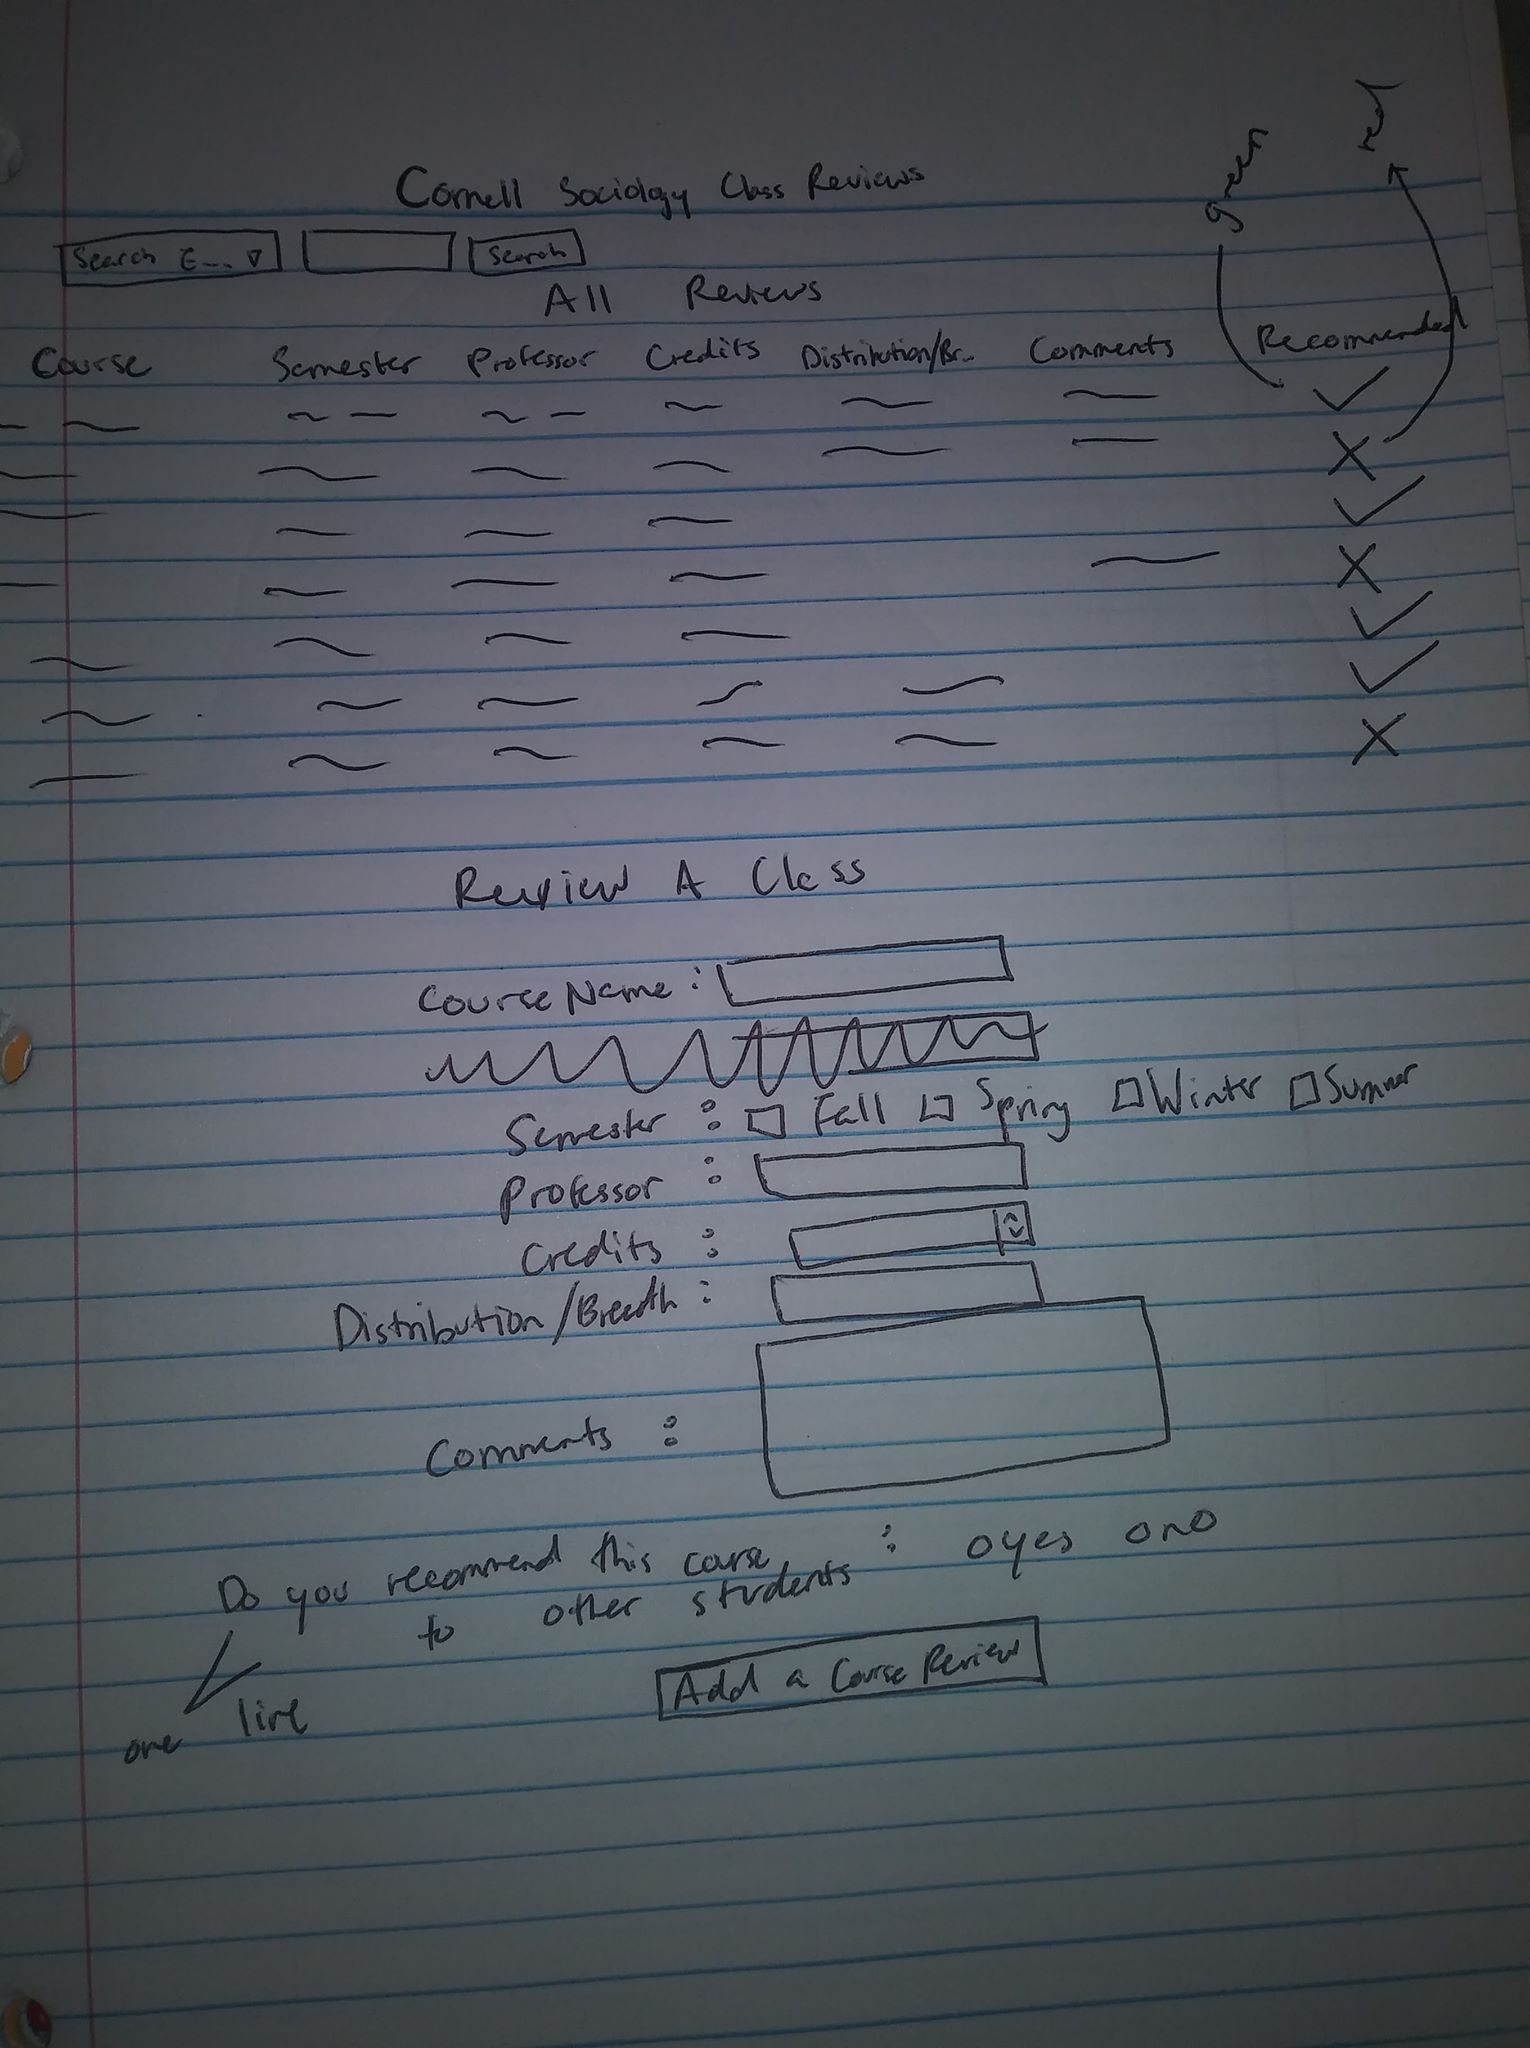 green
red
Cornell Sociology Class Reviews
Search E... Search
All Reviews
Course Semester Professor Credits Distribution/Br.. Comments Recommended
Review A Class
Course Name :
Semester : Fall Spring Winter Summer
Professor :
Credits :
Distribution/Breadth :
Comments :
Do you recommend this course : yes no
to other students
one line
Add a Course Review